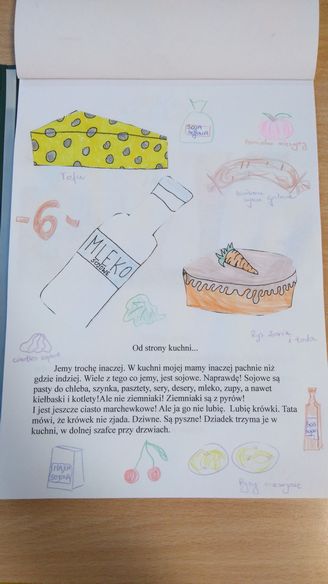 SOJA
Tofu
-6-
MLEKO
SOJOWE
Od strony kuchni...
Jemy trochę inaczej. W kuchni mojej mamy inaczej pachnie niż
gdzie indziej. Wiele z tego co jemy, jest sojowe. Naprawdę! Sojowe są
pasty do chleba, szynka, pasztety, ser, desery, mleko, zupy, a nawet
kiełbaski i kotlety!Ale nie ziemniaki! Ziemniaki są z pyrów!
I jest jeszcze ciasto marchewkowe! Ale ja go nie lubię. Lubię krówki. Tata
mówi, że krówek nie zjada. Dziwne. Są pyszne! Dziadek trzyma je w
kuchni, w dolnej szafce przy drzwiach.
MĄKA
SOJOWA